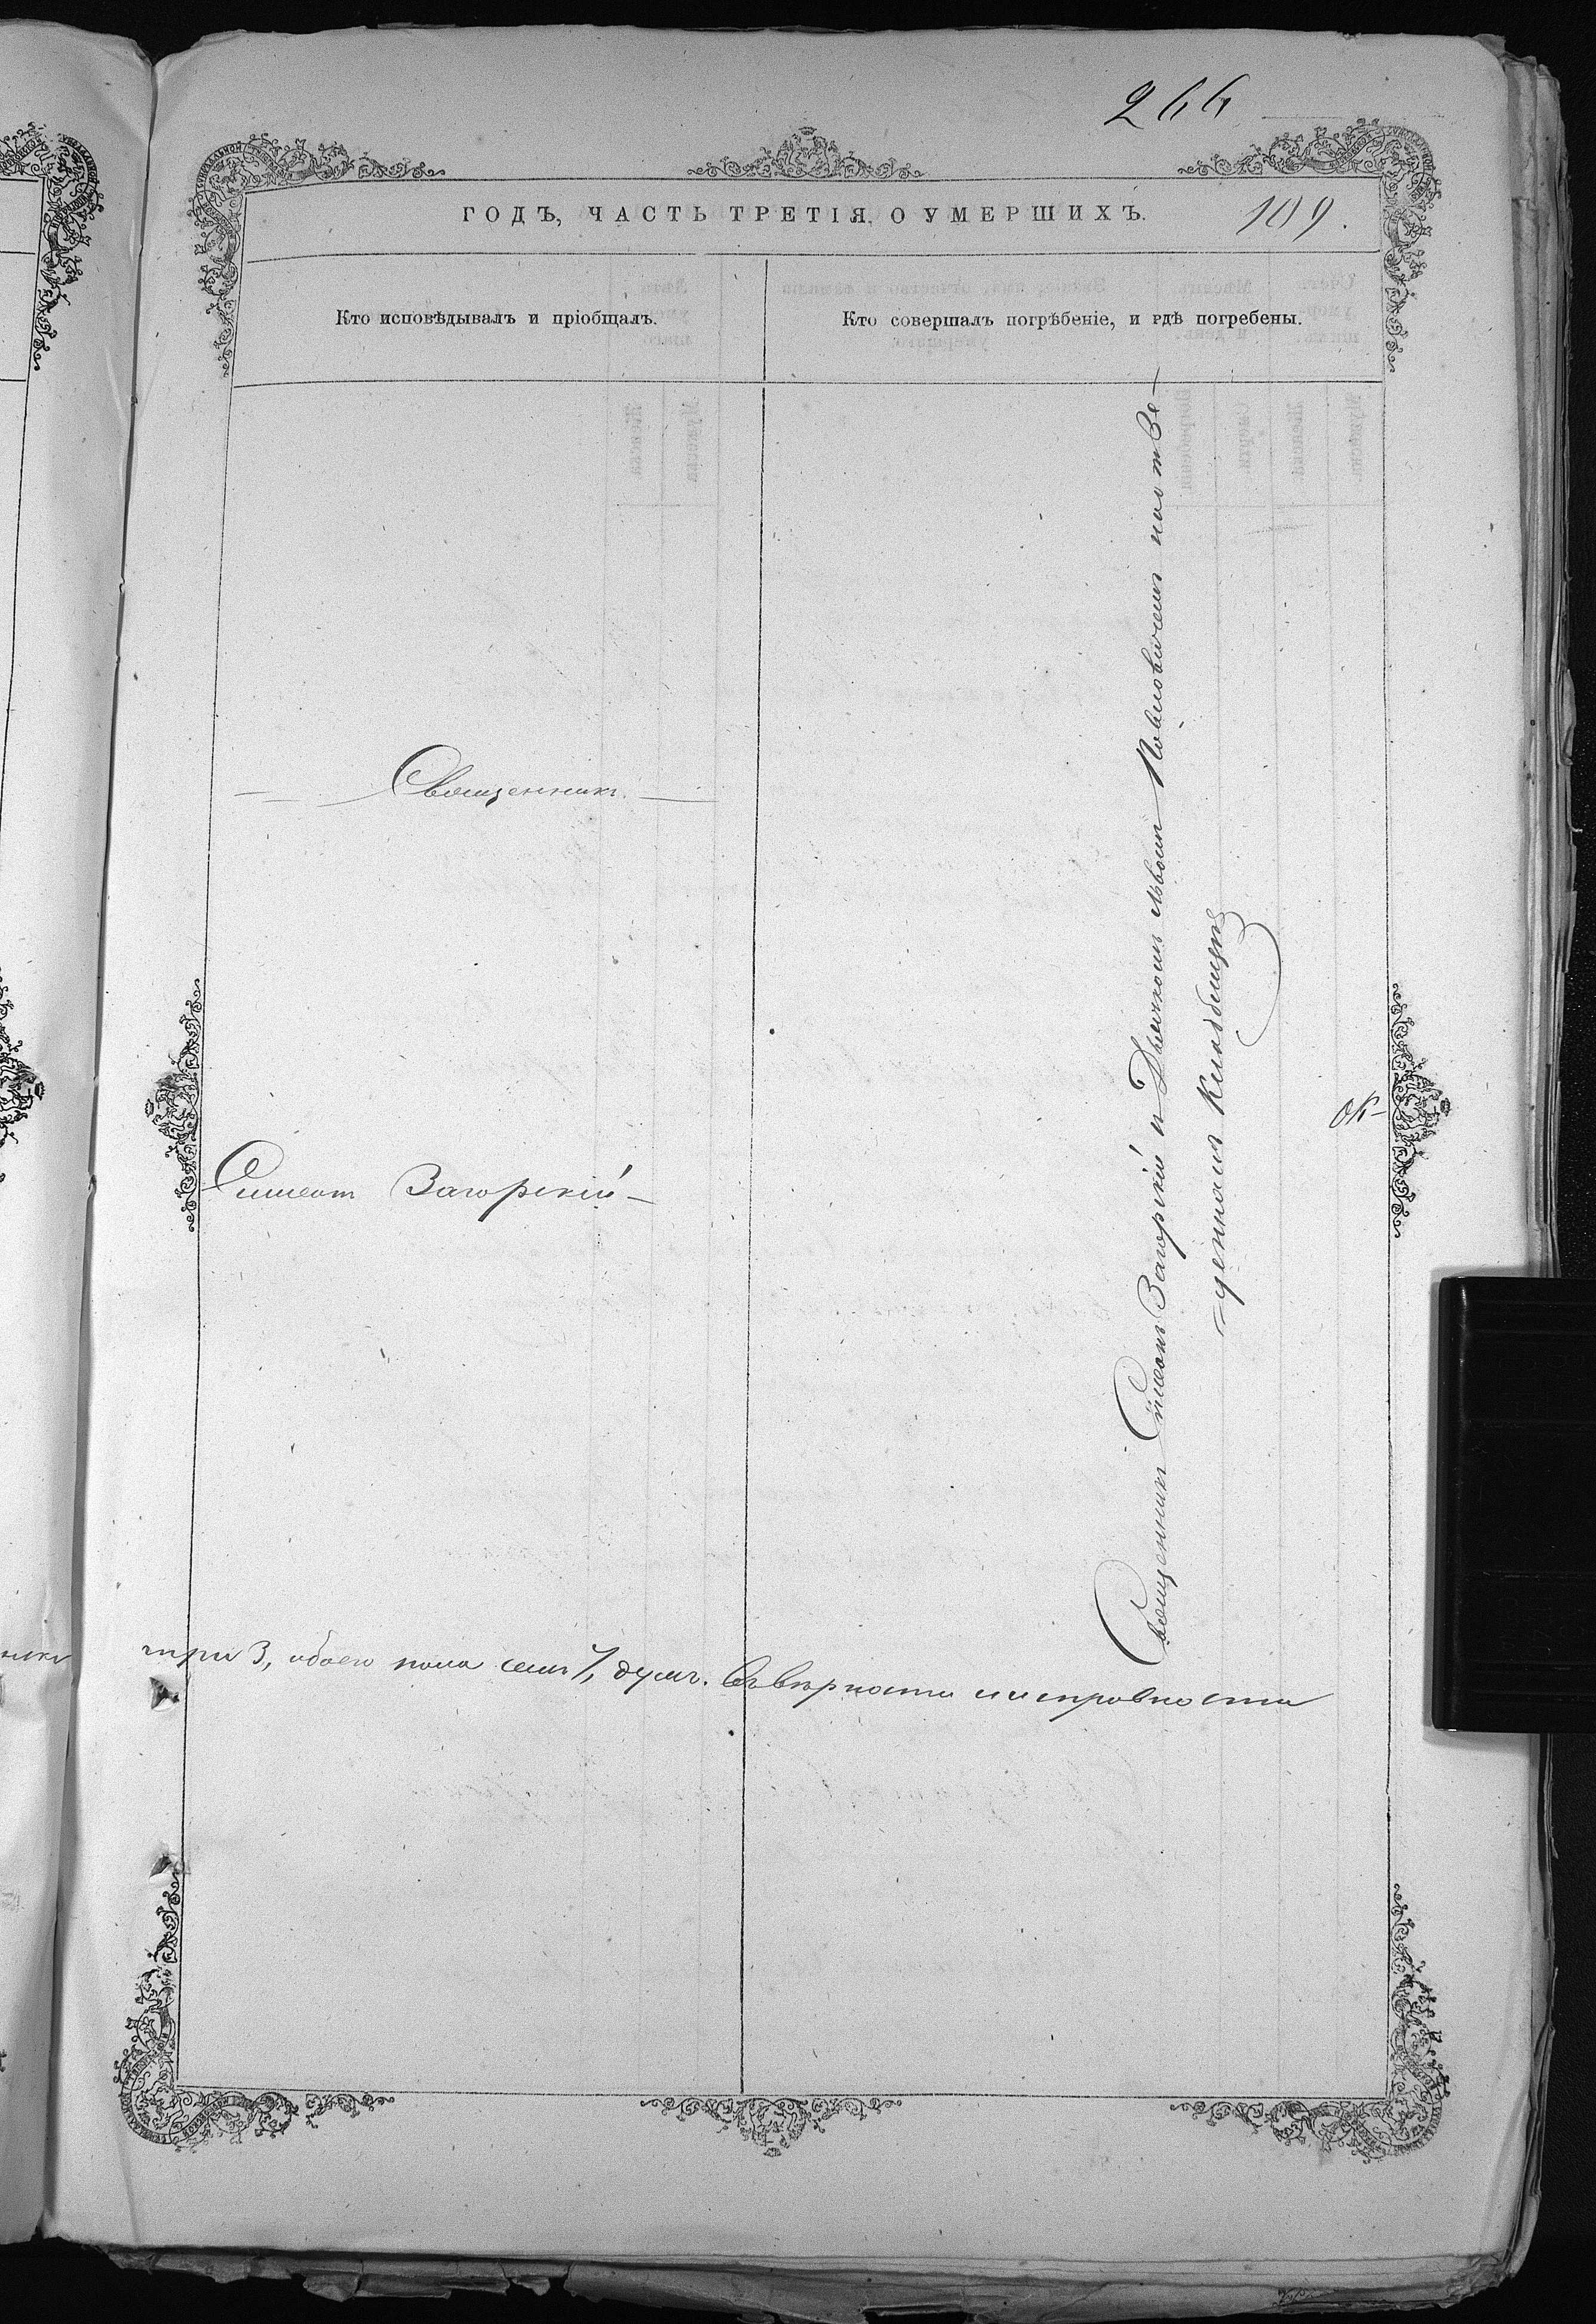 266
ГОДЪ, ЧАСТЬ ТРЕТІЯ, О УМЕРШИХЪ.
109.
Кто исповѣдывалъ и пріобщалъ.
Кто совершалъ погрѣбеніе, и гдѣ погребены.
Священникъ
Симеонъ Загорскій
Священникъ Симеонъ Загорскій и Дьячкомъ Львомъ Павловичемъ на отве-
денномъ Кладбищѣ
ОК-
три 3, обоего пола семь 7, душъ. Въ вѣрности и исправности